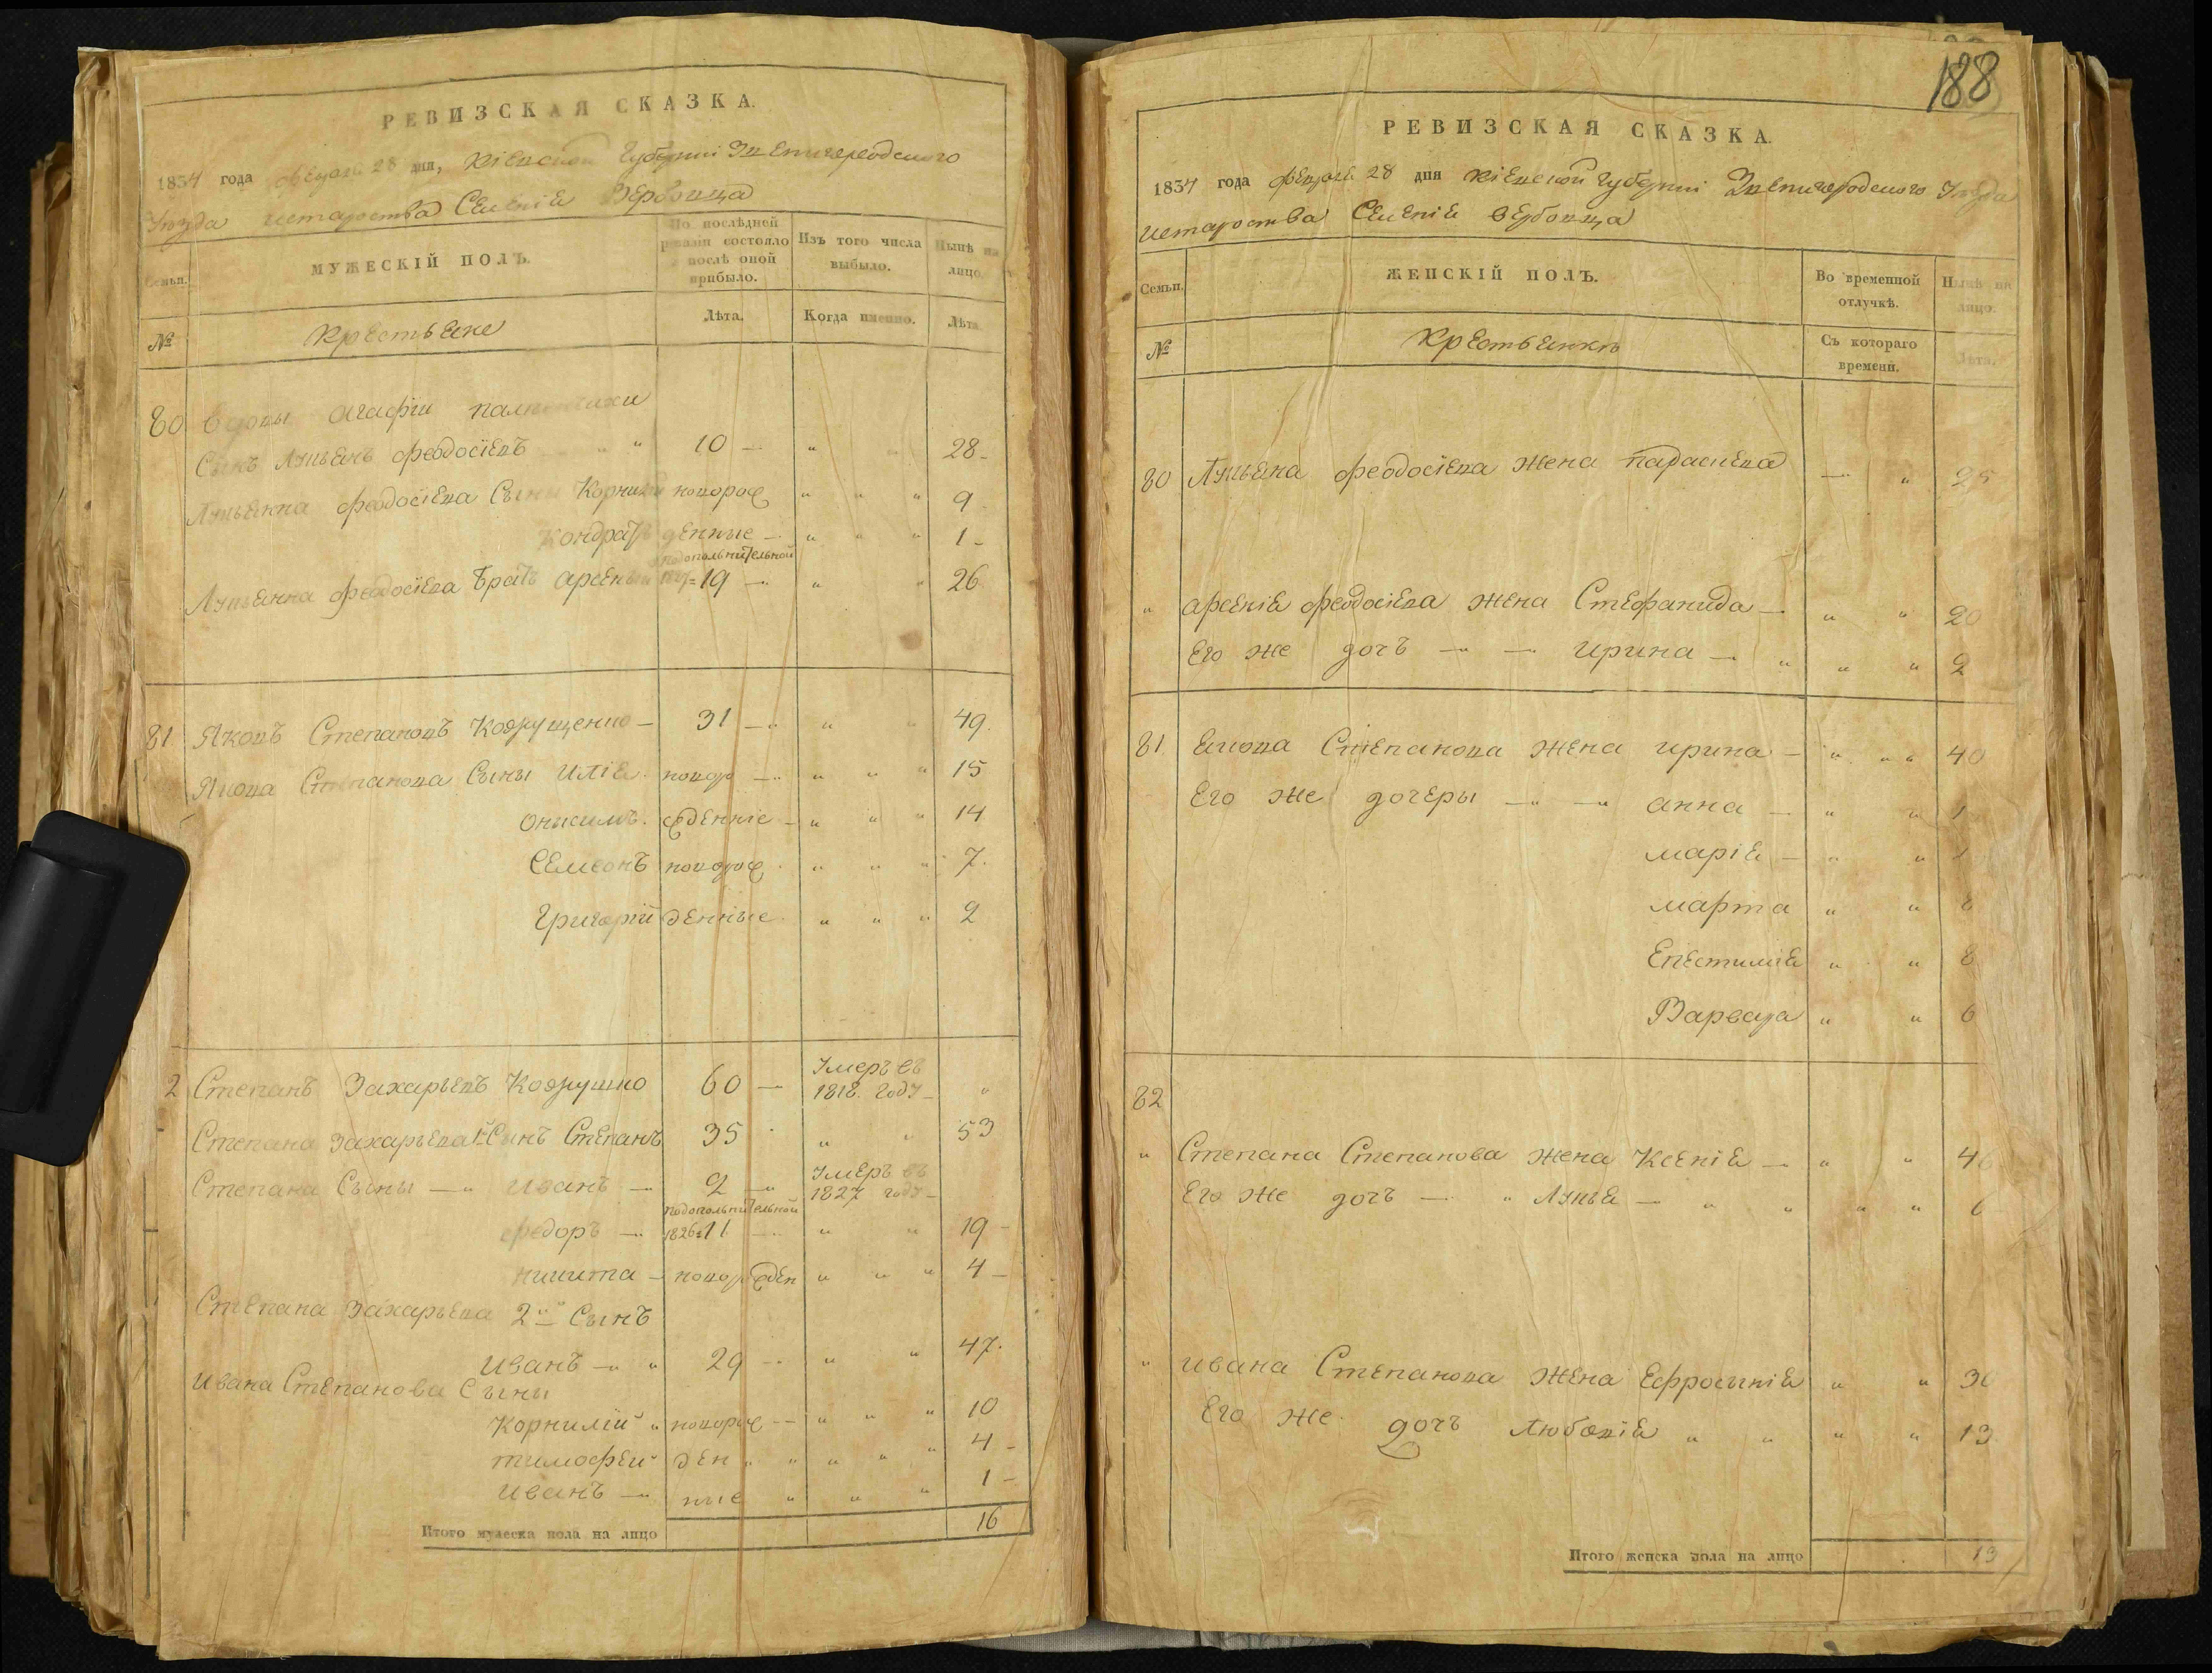 РЕВИЗСКАЯ СКАЗКА.
1834 года февраля 28 дня, Кіевской Губерніи Звенигородского
Уезда истароства Селеніе Вербовца
Семьи.
МУЖЕСКІЙ ПОЛЪ.
По послѣдней ревизіи состояло и послѣ оной прибыло.
Изъ того числа выбыло.
Нынѣ на лицо.
№
Крестьяне
Лѣта.
Когда именно.
Лѣта.
80 вдовы Агафіи
Сынъ Лукьянъ Феодосіевъ " 10 — " " 28 -
Лукьянна Феодосіева Сыны Корнилій новорож " " " 9
Кондратъ денные — " " " 1 -
подополнительной
Лукьянна Феодосіева Братъ Арсеный 19 — " " 26
81. Яковъ Степановъ Кодрущенко — 31 — " " 49.
Якова Степанова Сыны Иліа новор — " " " 15
Онисимъ. жденніе — " " " 14
Семеонъ новорож " " " 7.
Григорій денные " " " 2
2 Степанъ Захарьевъ Кодрушко 60 — Умеръ въ 1818 году — "
Степана Захарьева 1й Сынъ Степанъ 35 " " 53
Степана Сыны — " Иванъ — 2 — Умеръ въ 1827 году —
подополнительной
Федоръ — 1826 = 11 — " " 19 -
никита — новорожден " " " 4 -
Степана Захарьева 2й Сынъ
Иванъ — " 29 — " " 47.
Ивана Степанова Сыны
Корнилій " новорож — " " " 10
тимофей " ден " " " " " 4 -
Иванъ — ные " " " 1 -
Итого мужеска пола на лицо 16
188
РЕВИЗСКАЯ СКАЗКА.
1834 года февраля 28 дня Кіевской Губерніи Звенигородского Уезда
истароства Селеніе Вербовца
Семьи.
ЖЕНСКІЙ ПОЛЪ.
Во временной отлучкѣ.
Нынѣ на лицо.
№
Крестьянки
Съ котораго времени.
Лѣта.
80 Лукьяна Феодосіева жена параскева — " 25
" Арсеніа Феодосіева жена Стефанида — " " 20
Его же дочъ — — Ирина — " " " 2
81. Якова Степанова жена ирина — " " " 40
Его же дочеры — — анна — " "
маріа — " "
марта " " 8
Епестиміа " " 8
Варвара " " 6
82
" Степана Степанова жена Ксеніа — " "
Его же дочъ — " Лукьа — " " " " 6
" Ивана Степанова жена Ефросыніа " "
Его же дочъ Любовіа " " " " 13
Итого женска пола на лицо 13